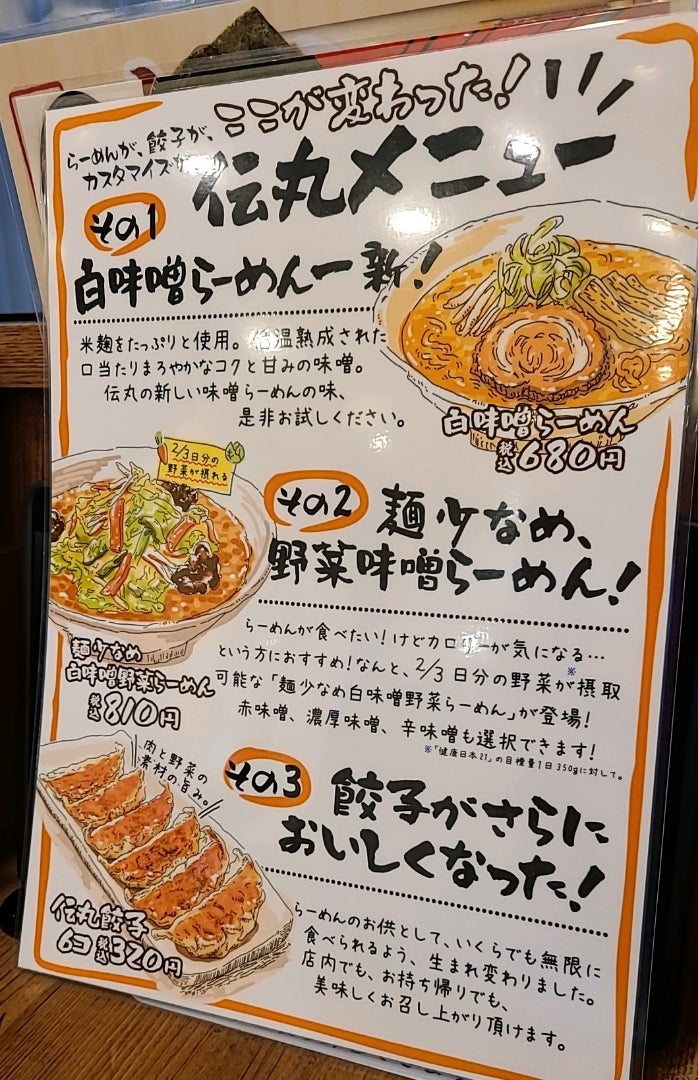 ここが変わった!
らーめんが、餃子が、
カスタマイズ
伝丸メニュー
その1
白味噌らーめん一新!
米麹をたっぷりと使用。低温熟成された
口当たりまろやかなコクと甘みの味噌。
伝丸の新しい味噌らーめんの味、
是非お試しください。
白味噌らーめん
税込680円
2/3日分の
野菜が摂れる
その2
麺少なめ、
野菜味噌らーめん!
らーめんが食べたい!けどカロリーが気になる…
という方におすすめ!なんと、2/3日分の野菜が※摂取
可能な「麺少なめ白味噌野菜らーめん」が登場!
赤味噌、濃厚味噌、辛味噌も選択できます!
※「健康日本21」の目標量1日350gに対して。
麺少なめ
白味噌野菜らーめん
税込810円
肉と野菜の
素材の旨み。
その3
餃子がさらに
おいしくなった!
らーめんのお供として、いくらでも無限に
食べられるよう、生まれ変わりました。
店内でも、お持ち帰りでも、
美味しくお召し上がり頂けます。
伝丸餃子
6コ 税込320円